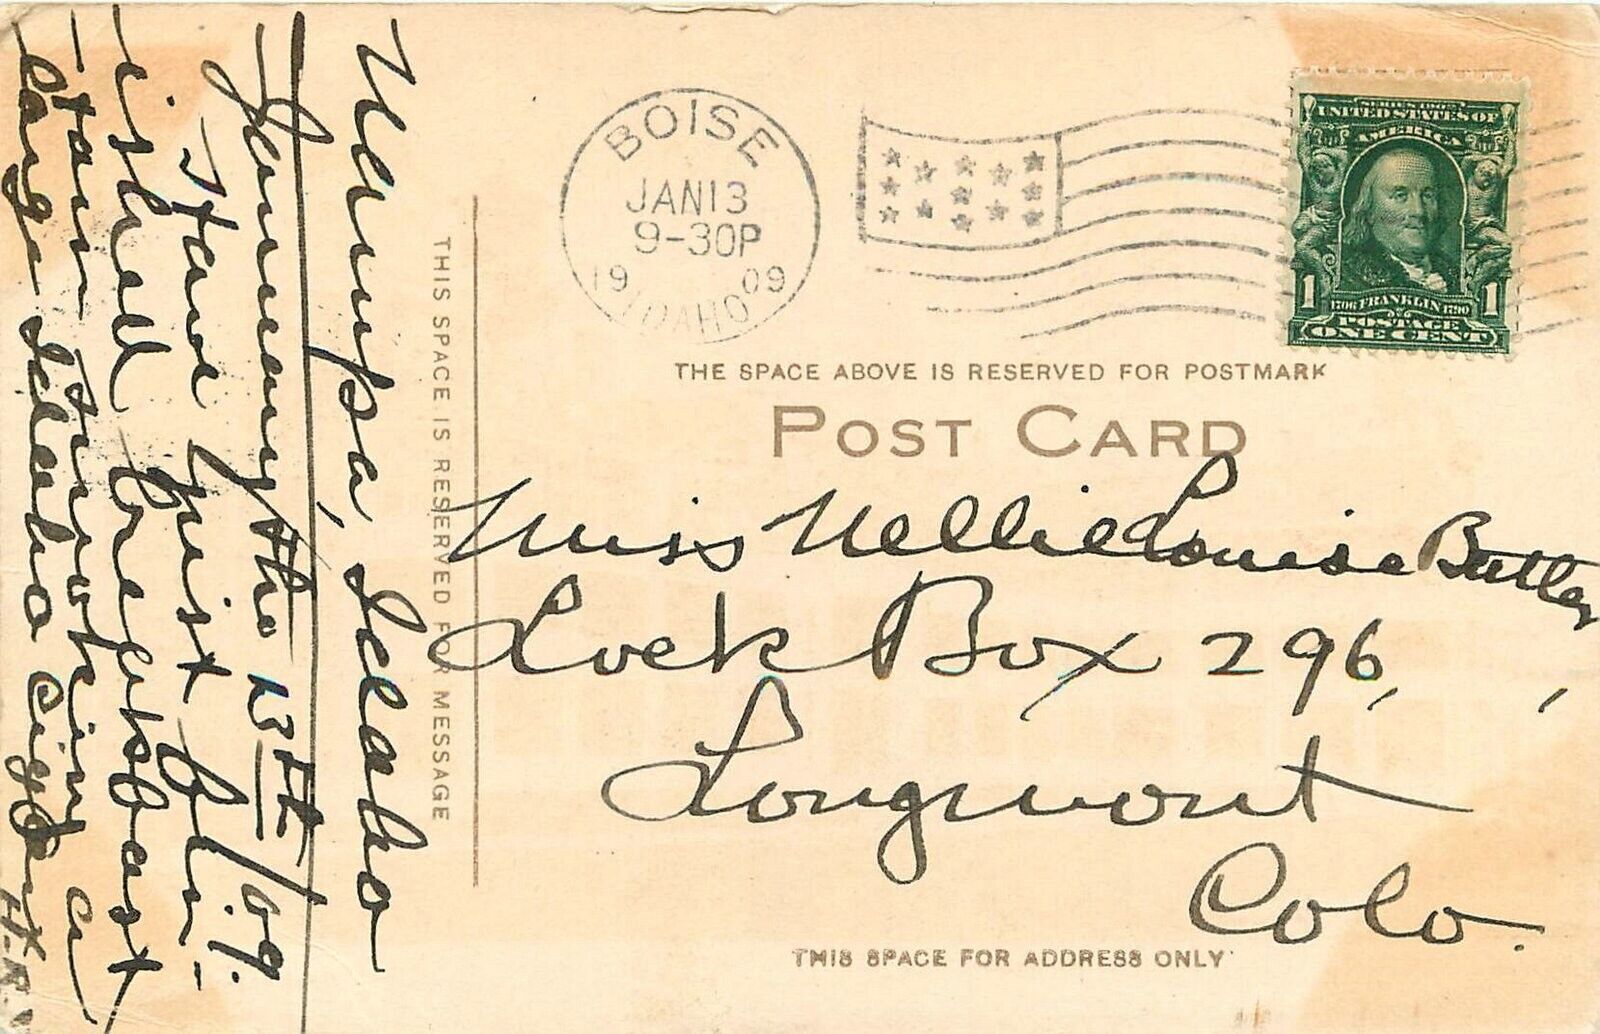 Nampa, Idaho
January the 13th/09.
Have just fin-
ished breakfast
am smoking a
large Idaho cigar
H.R.
THIS SPACE IS RESERVED FOR MESSAGE
BOISE
JAN 13
9-30P
1909
IDAHO
SERIES 1902
UNITED STATES OF
AMERICA
1706 FRANKLIN 1790
POSTAGE
1 ONE CENT 1
THE SPACE ABOVE IS RESERVED FOR POSTMARK
POST CARD
Miss Nellie Louise Butler
Lock Box 296,
Longmont
Colo.
THIS SPACE FOR ADDRESS ONLY